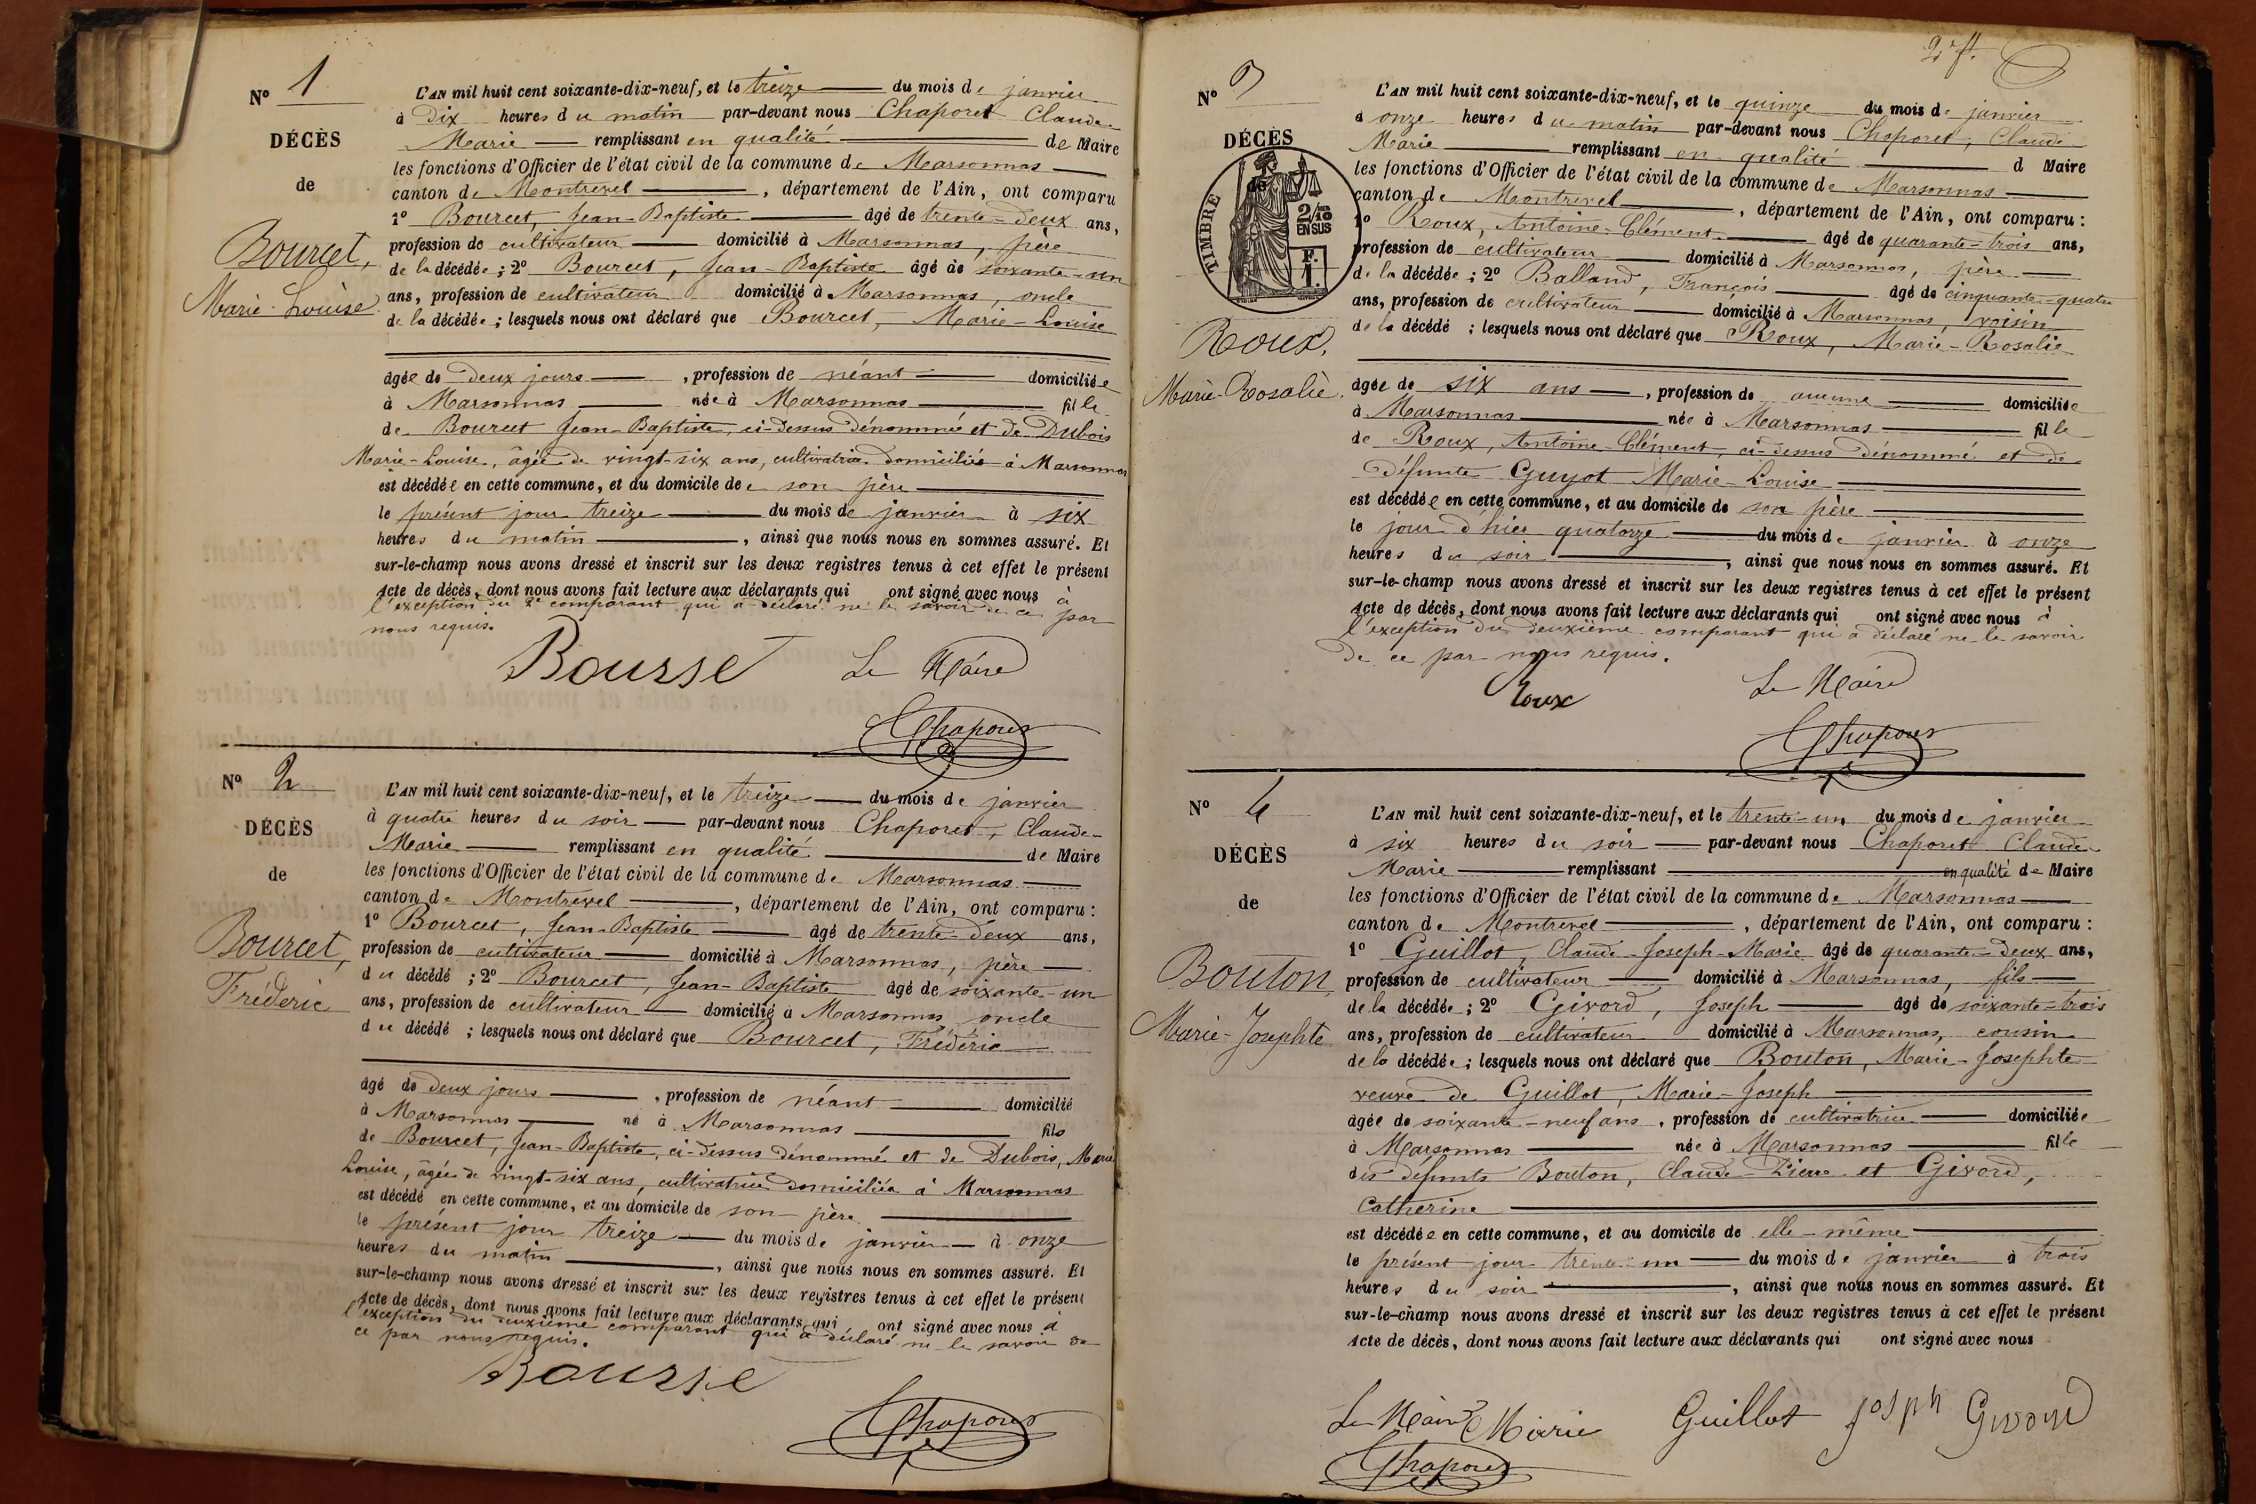 N° 1
DÉCÈS
de
Bourcet,
Marie-Louise
L'AN mil huit cent soixante-dix-neuf, et le treize du mois de janvier
à dix heures du matin par-devant nous Chaporet Claude-
Marie remplissant en qualité de Maire
les fonctions d'Officier de l'état civil de la commune de Marsonnas
canton de Montrevel, département de l'Ain, ont comparu
1° Bourcet, Jean-Baptiste âgé de trente-deux ans,
profession de cultivateur domicilié à Marsonnas, père
de la décédée; 2° Bourcet, Jean-Baptiste âgé de soixante-un
ans, profession de cultivateur domicilié à Marsonnas, oncle
de la décédée; lesquels nous ont déclaré que Bourcet, Marie-Louise
âgée de deux jours, profession de néant domiciliée
à Marsonnas née à Marsonnas fille
de Bourcet Jean-Baptiste, ci-dessus dénommé et de Dubois
Marie-Louise, âgée de vingt-six ans, cultivatrice domiciliée à Marsonnas
est décédée en cette commune, et au domicile de son père
le présent jour treize du mois de janvier à six
heures du matin, ainsi que nous nous en sommes assuré. Et
sur-le-champ nous avons dressé et inscrit sur les deux registres tenus à cet effet le présent
Acte de décès, dont nous avons fait lecture aux déclarants qui ont signé avec nous à
l'exception du 2e comparant qui a déclaré ne le savoir de ce par
nous requis.
Bourse Le Maire
Chaporet
N° 2
DÉCÈS
de
Bourcet,
Fréderic
L'AN mil huit cent soixante-dix-neuf, et le treize du mois de janvier
à quatre heures du soir par-devant nous Chaporet, Claude-
Marie remplissant en qualité de Maire
les fonctions d'Officier de l'état civil de la commune de Marsonnas
canton de Montrevel, département de l'Ain, ont comparu :
1° Bourcet, Jean-Baptiste âgé de trente-deux ans,
profession de cultivateur domicilié à Marsonnas, père
du décédé; 2° Bourcet, Jean-Baptiste âgé de soixante-un
ans, profession de cultivateur domicilié à Marsonnas oncle
du décédé; lesquels nous ont déclaré que Bourcet, Fréderic
âgé de deux jours, profession de néant domicilié
à Marsonnas né à Marsonnas fils
de Bourcet, Jean-Baptiste, ci-dessus dénommé et de Dubois, Marie
Louise, âgée de vingt-six ans, cultivatrice domiciliée à Marsonnas
est décédé en cette commune, et au domicile de son père
le présent jour treize du mois de janvier à onze
heures du matin, ainsi que nous nous en sommes assuré. Et
sur-le-champ nous avons dressé et inscrit sur les deux registres tenus à cet effet le présent
Acte de décès, dont nous avons fait lecture aux déclarants qui ont signé avec nous à
l'exception du deuxième comparant qui a déclaré ne le savoir de
ce par nous requis.
Bourse
Chaporet
N° 3
DÉCÈS
de
TIMBRE
2/10 EN SUS
F. 1.
Roux,
Marie-Rosalie.
L'AN mil huit cent soixante-dix-neuf, et le quinze du mois de janvier
à onze heures du matin par-devant nous Chaporet, Claude
Marie remplissant en qualité d Maire
les fonctions d'Officier de l'état civil de la commune de Marsonnas
canton de Montrevel, département de l'Ain, ont comparu :
1° Roux, Antoine-Clément âgé de quarante-trois ans,
profession de cultivateur domicilié à Marsonnas, père
de la décédée; 2° Balland, François âgé de cinquante-quatre
ans, profession de cultivateur domicilié à Marsonnas, voisin
de la décédé; lesquels nous ont déclaré que Roux, Marie-Rosalie
âgée de six ans, profession de aucune domiciliée
à Marsonnas née à Marsonnas fille
de Roux, Antoine-Clément, ci-dessus dénommé et de
défunte Guyot Marie-Louise
est décédée en cette commune, et au domicile de son père
le jour d'hier quatorze du mois de janvier à onze
heures du soir, ainsi que nous nous en sommes assuré. Et
sur-le-champ nous avons dressé et inscrit sur les deux registres tenus à cet effet le présent
Acte de décès, dont nous avons fait lecture aux déclarants qui ont signé avec nous à
l'exception du deuxième comparant qui a déclaré ne le savoir
de ce par nous requis.
Roux Le Maire
Chaporet
N° 4
DÉCÈS
de
Bouton,
Marie-Josephte
L'AN mil huit cent soixante-dix-neuf, et le trente-un du mois de janvier
à six heures du soir par-devant nous Chaporet Claude
Marie remplissant en qualité de Maire
les fonctions d'Officier de l'état civil de la commune de Marsonnas
canton de Montrevel, département de l'Ain, ont comparu :
1° Guillot, Claude-Joseph-Marie âgé de quarante-deux ans,
profession de cultivateur domicilié à Marsonnas, fils
de la décédée; 2° Givord, Joseph âgé de soixante-trois
ans, profession de cultivateur domicilié à Marsonnas, cousin
de la décédée; lesquels nous ont déclaré que Bouton, Marie-Josephte
veuve de Guillot, Marie-Joseph
âgée de soixante-neuf ans, profession de cultivatrice domiciliée
à Marsonnas née à Marsonnas fille
des défunts Bouton, Claude-Pierre et Givord,
Catherine
est décédée en cette commune, et au domicile de elle-même
le présent jour trente-un du mois de janvier à trois
heures du soir, ainsi que nous nous en sommes assuré. Et
sur-le-champ nous avons dressé et inscrit sur les deux registres tenus à cet effet le présent
Acte de décès, dont nous avons fait lecture aux déclarants qui ont signé avec nous
Le Maire Marie Guillot Josph Givord
Chaporet